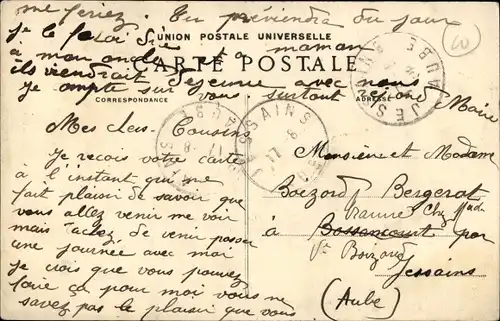 me feriez. Tu préviendra du jour
je le ferai
UNION POSTALE UNIVERSELLE
à mon oncle et à maman
CARTE POSTALE
ils viendrait déjeuné avec nous
Je compte sur vous surtout répond
CORRESPONDANCE
ADRESSE
Marie
JESSAINS
AUBE
Mes chers Cousins
Je reçois votre carte
à l'instant qui me
fait plaisir de savoir que
vous allez venir me voir
mais tachez de venir passer
une journée avec moi
Je crois que vous pouvez
faire ça pour moi vous ne
savez pas le plaisir que vous
Monsieur et Madame
Boizard Bergerat
Chez Mada
à Bossancourt par
Ve Boizard
Jessains
(Aube)